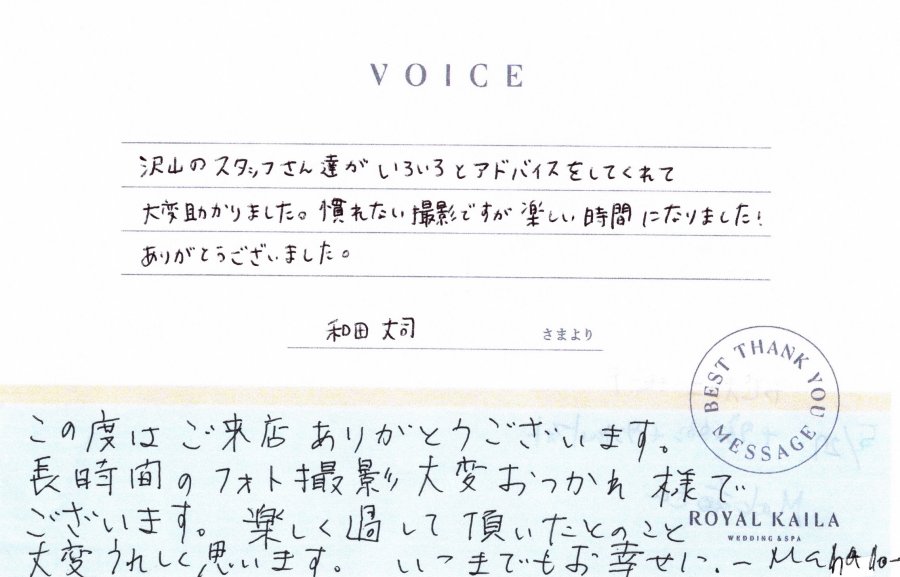 VOICE
沢山のスタッフさん達がいろいろとアドバイスをしてくれて
大変助かりました。慣れない撮影ですが楽しい時間になりました!
ありがとうございました。
和田 丈司 さまより
BEST THANK YOU MESSAGE
この度はご来店ありがとうございます。
長時間のフォト撮影大変おつかれ様で
ございます。楽しく過して頂いたとのこと
ROYAL KAILA
WEDDING & SPA
大変うれしく思います。 いつまでもお幸せに.